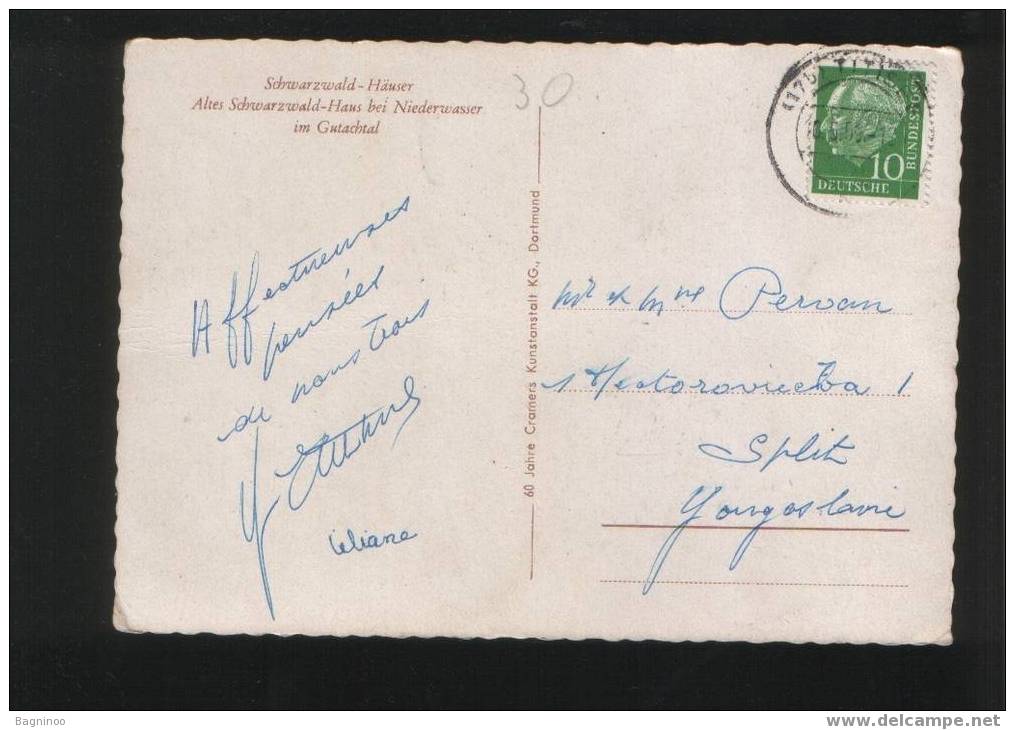 Schwarzwald-Häuser
Altes Schwarzwald-Haus bei Niederwasser
im Gutachtal
30
Affectueuses
pensées
de nous trois
Liliane
60 Jahre Cramers Kunstanstalt KG., Dortmund
10
DEUTSCHE
BUNDESPOST
Mr et Mme Pervan
1 Hectoroviceva 1
Split
Yougoslavie
Bagninoo
www.delcampe.net